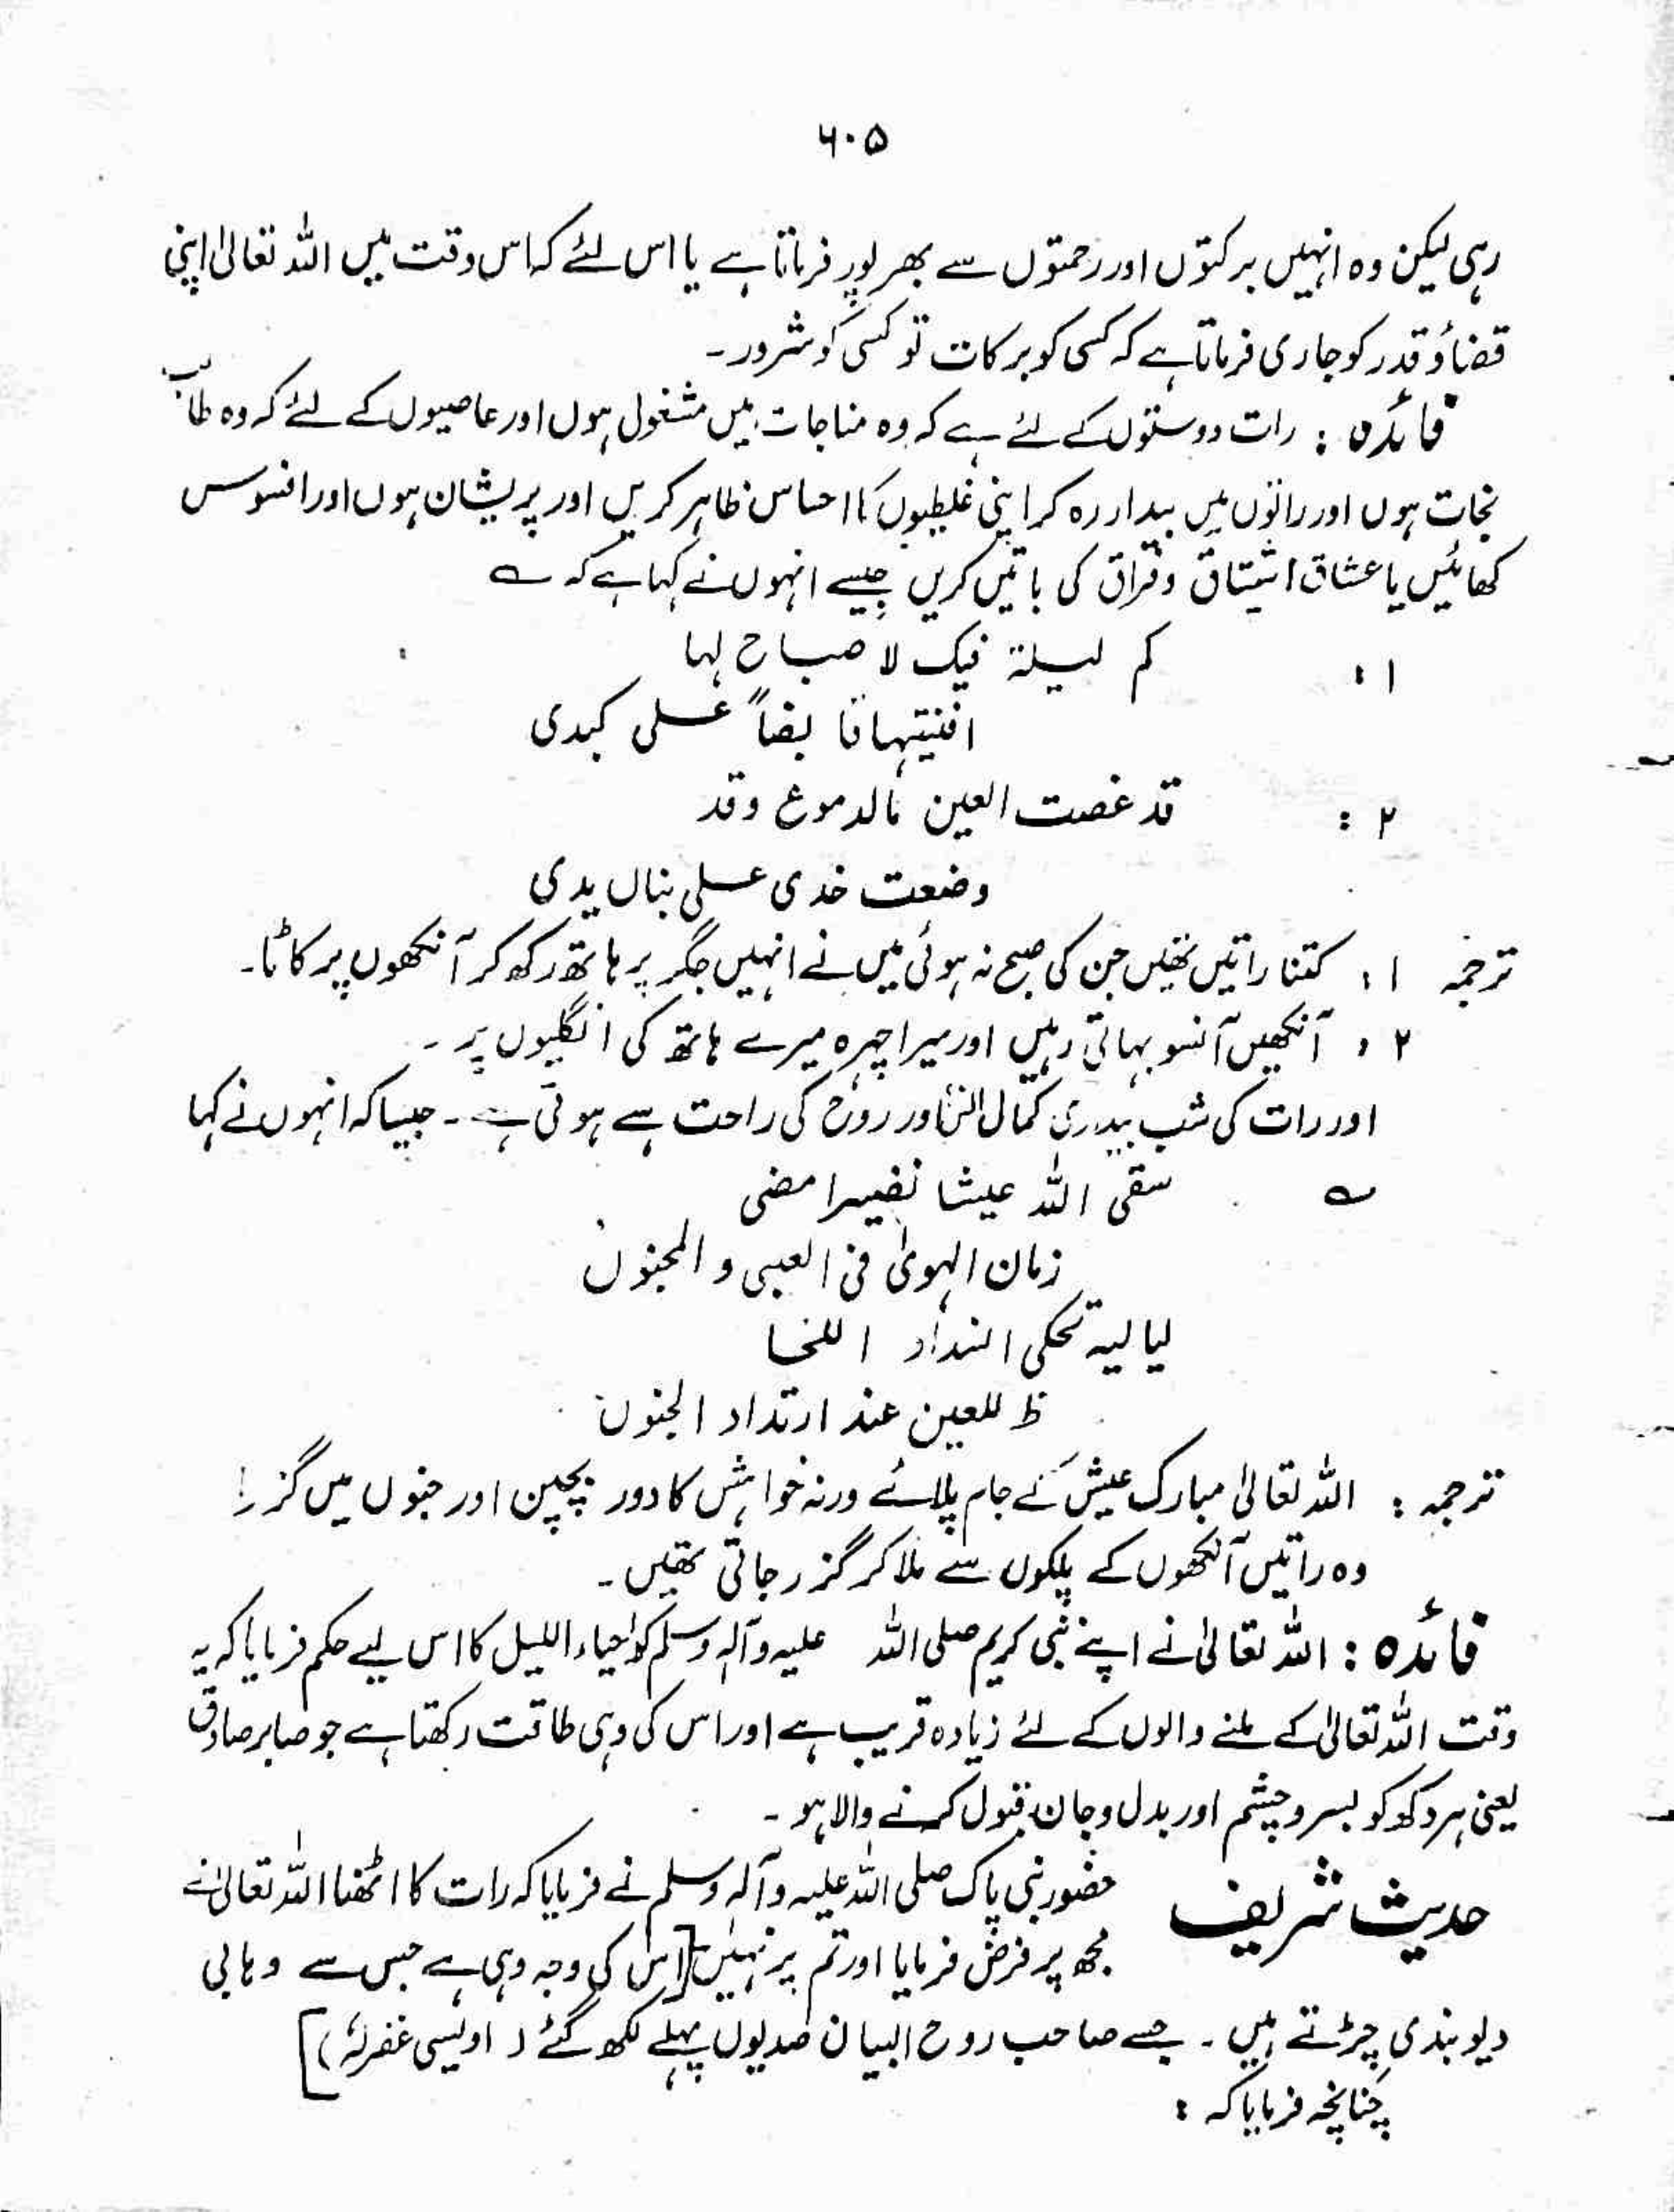 ۶۰۵
رہی لیکن وہ انہیں برکتوں اور رحمتوں سے بھر لور فرماتا ہے یا اس لئے کہ اس وقت میں اللہ تعالیٰ اپنی
قضاؤ قدر کو جاری فرماتا ہے کہ کسی کو برکات تو کسی کو شرور۔
فائدہ : رات دوستوں کے لئے ہے کہ وہ مناجات میں مشغول ہوں اور عاصیوں کے لئے کہ وہ طالب
نجات ہوں اور راتوں میں بیدار رہ کر اپنی غلیطیوں کا احساس ظاہر کریں اور پریشان ہوں اور افسوس
کھائیں یا عشاق اشتیاق وفراق کی باتیں کریں جیسے انہوں نے کہا ہے کہ ؎
۱ : کم لیلۃ فیک لا صباح لہا
افنیتہا قابضاً علی کبدی
۲ : قد غصت العین بالدموع وقد
وضعت خدی علی بنان یدی
ترجمہ ۱ : کتنا راتیں تھیں جن کی صبح نہ ہوئی میں نے انہیں جگر پر ہاتھ رکھ کر آنکھوں پر کاٹا۔
۲ : آنکھیں آنسو بہاتی رہیں اور میرا چہرہ میرے ہاتھ کی انگلیوں پر ۔
اور رات کی شب بیدری کمال اور روح کی راحت سے ہوتی ہے۔ جیسا کہ انہوں نے کہا
؎ سقی اللہ عیشا نضیرا مضی
زمان الہویٰ فی الصبی و المجنون
لیالیہ تحکی انسداد اللحا
ظ للعین عند ارتداد الجنون
ترجمہ : اللہ تعالیٰ مبارک عیش کے جام پلائے ورنہ خواہش کا دور بچپن اور جنوں میں گزرا
وہ راتیں آنکھوں کے پلکوں سے ملا کر گزر جاتی تھیں۔
فائدہ : اللہ تعالیٰ نے اپنے نبی کریم صلی اللہ علیہ وآلہ وسلم کو احیاء اللیل کا اس لیے حکم فرمایا کہ یہ
وقت اللہ تعالیٰ کے ملنے والوں کے لئے زیادہ قریب ہے اور اس کی وہی طاقت رکھتا ہے جو صابر صادق
یعنی ہر دکھ کو بسر وچشم اور بدل وجان قبول کرنے والا ہو ۔
حدیث شریف حضور نبی پاک صلی اللہ علیہ وآلہ وسلم نے فرمایا کہ رات کا اٹھنا اللہ تعالیٰ نے
مجھ پر فرض فرمایا اور تم پر نہیں [اس کی وجہ وہی ہے جس سے وہابی
دیوبندی چڑتے ہیں ۔ جسے صاحب روح البیان صدیوں پہلے لکھ گئے ( اویسی غفرلہٗ )]
چنانچہ فرمایا کہ :